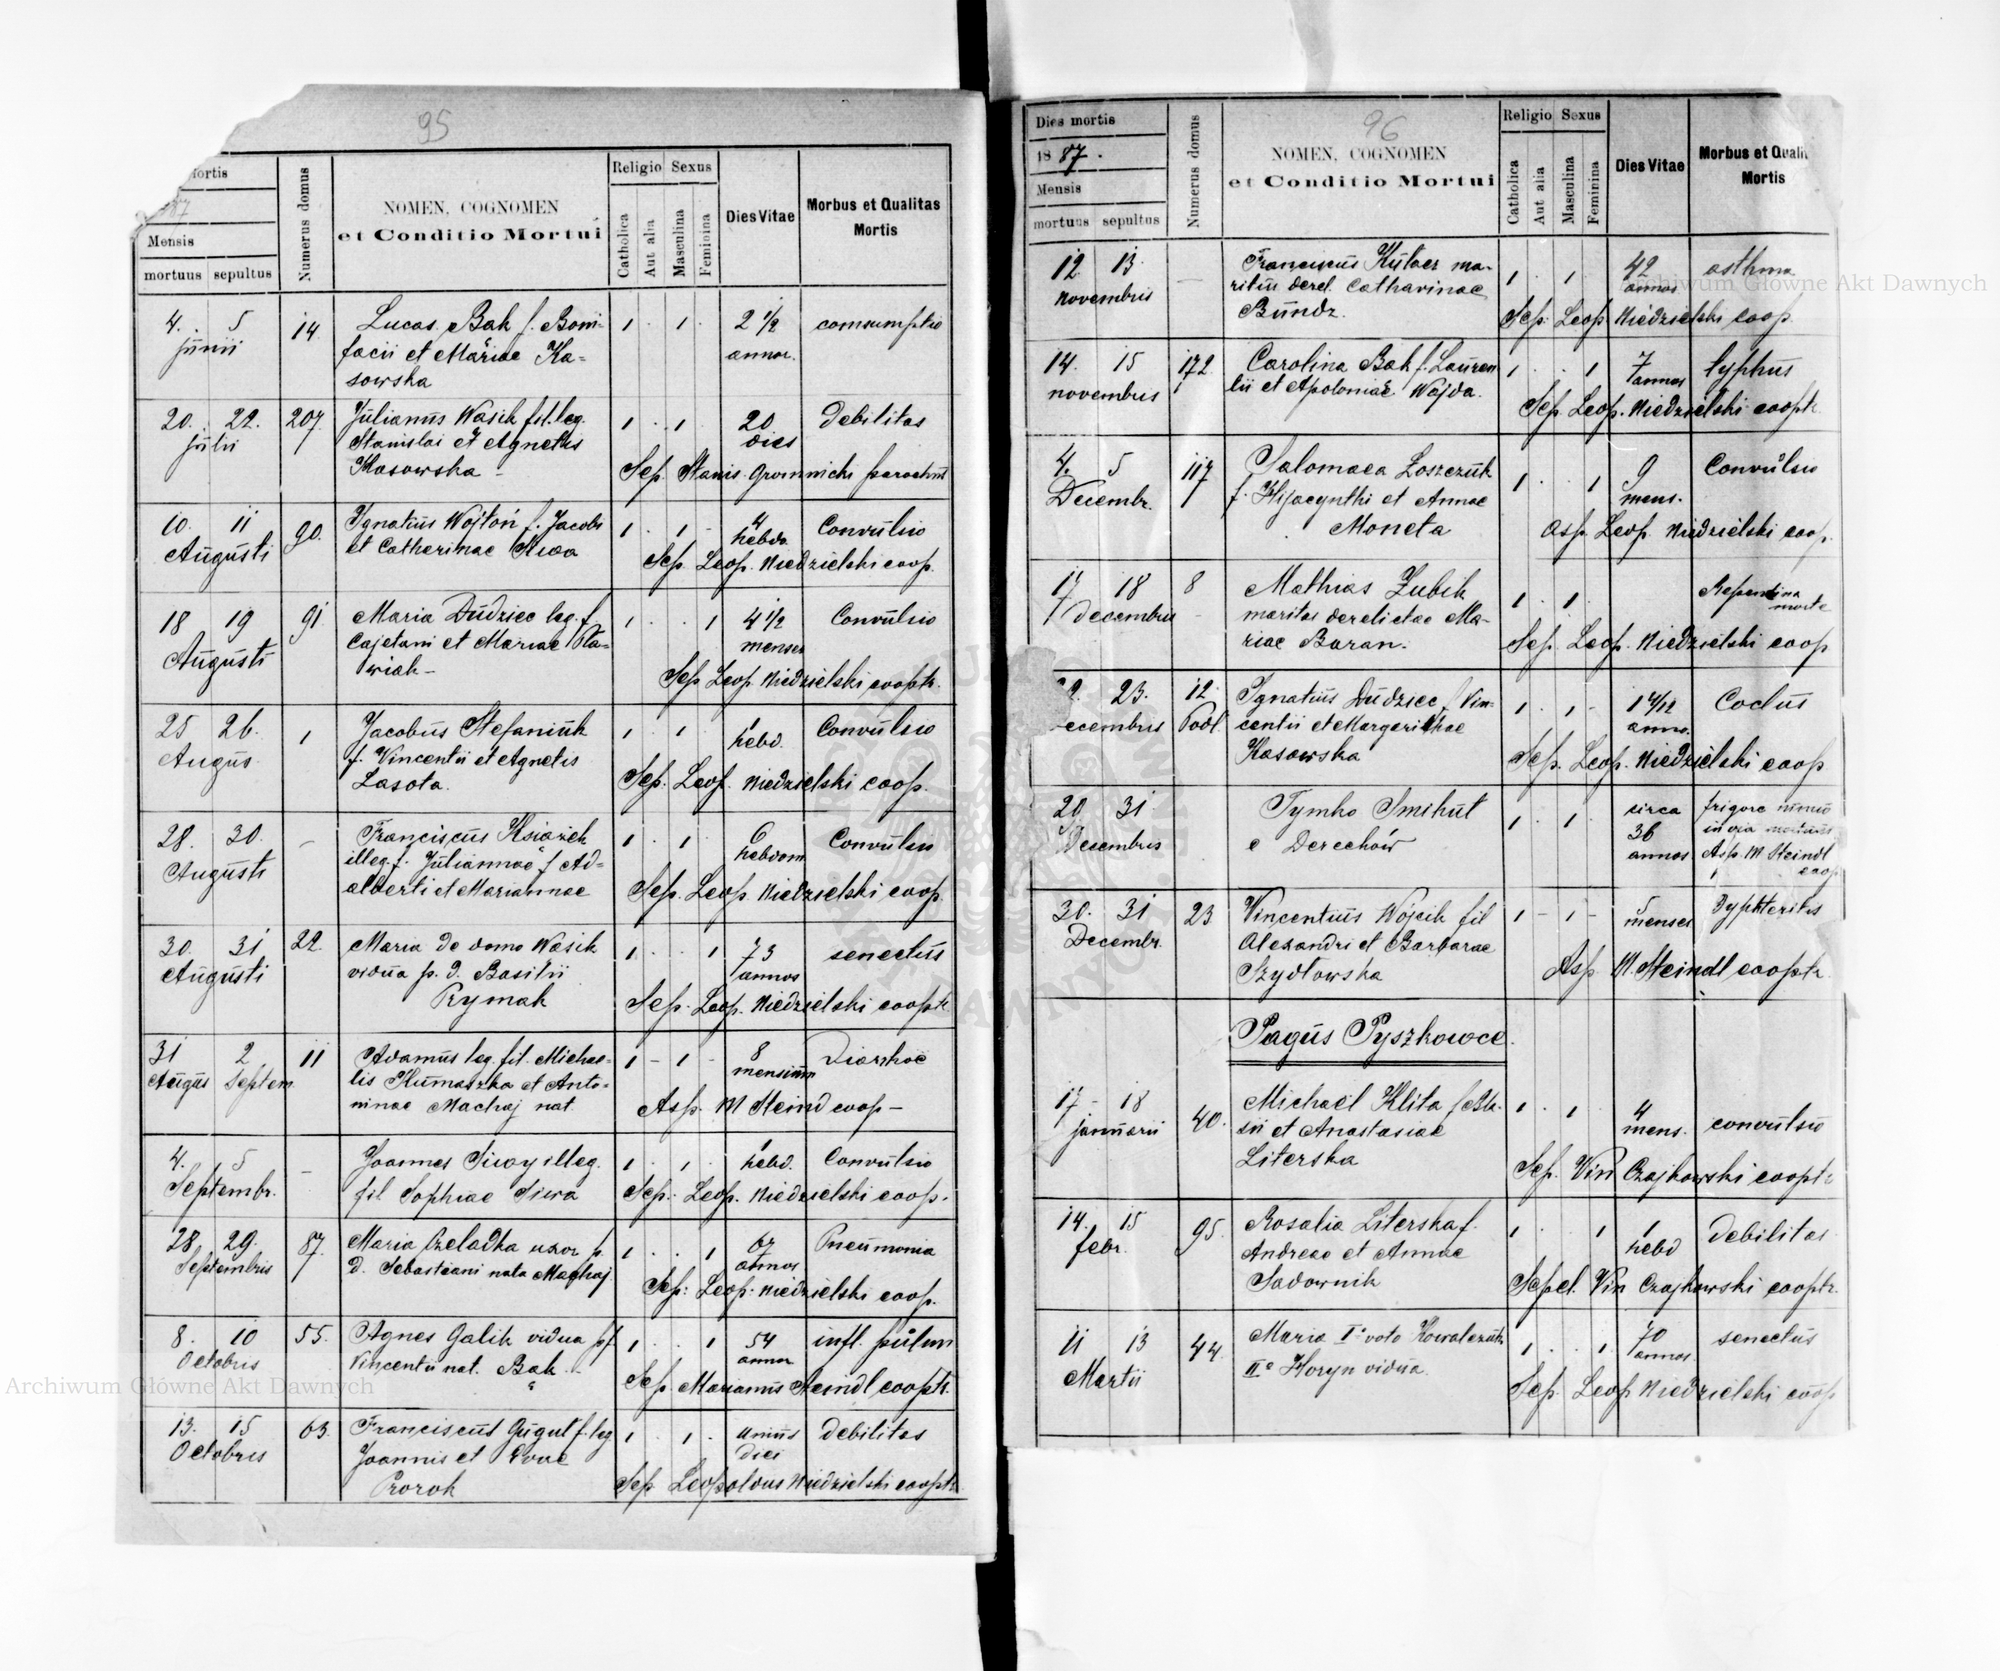 95
Mortis
87
Mensis
mortuus sepultus
Numerus domus
NOMEN, COGNOMEN
et Conditio Mortui
Religio Sexus
Catholica
Aut alia
Masculina
Feminina
Dies Vitae
Morbus et Qualitas
Mortis
4. 5
junii
14
Lucas Bąk f. Boni-
facii et Mariae Ka-
sowska
1 . 1 .
2 1/2
annor.
comsumptio
20. 22.
julii
207
Julianus Wąsik fil. leg.
Stanislai et Agnetis
Kasowska -
1 . 1
20
dies
Debilitas
Sep. Stanis. Gromnicki parochus
10. 11
Augusti
90.
Ignatius Wojtoń f. Jacobi
et Catherinae Siwa
1 . 1 -
4
hebdo
Convulsio
Sep. Leop. Niedzielski coop.
18 19
Augusti
91
Maria Dudziec leg. f.
Cajetani et Mariae
wiak -
1 . . 1
4 1/2
menses
Convulsio
Sep. Leop. Niedzielski cooptr.
25 26.
Augus.
1
Jacobus Stefaniuk
f. Vincentii et Agnetis
Lasota.
1 . 1 .
1
hebd.
Convulsio
Sep. Leop. Niedzielski coop.
28. 30.
Augusti
-
Franciscus Książek
illeg. f. Juliannae f. Ad-
alberti et Mariannae
1 . 1 .
6
hebdom
Convulsio
Sep. Leop. Niedzielski coop.
30. 31
Augusti
22.
Maria de domo Wąsik
vidua p. d. Basilii
Prymak
1 . . 1
73
annos
senectus
Sep. Leop. Niedzielski cooptr.
31 2
Augus Septem
11
Adamus leg. fil. Michae-
lis Kumaszka et Anto-
ninae Machaj nat.
1 - 1 -
8
mensium
Diarrhoe
Asp. M Steind coop -
4. 5
Septembr.
-
Joannes Siwy illeg.
fil Sophiae Siwa
1 . 1 .
1
hebd.
Convulsio
Sep. Leop. Niedzielski coop.
28. 29.
Septembris
87.
Maria Czeladka uxor p.
d. Sebastiani nata Machaj
1 . . 1
67
annos
Pneumonia
Sep: Leop: Niedzielski coop.
8. 10
Octobris
55.
Agnes Galik vidua p f.
Vincentii nat. Bąk -
1 . . 1
54
annor
infl. pulm
Sep. Marianus Steindl cooptr.
13. 15
Octobris
63.
Franciscus Gugul f. leg
Joannis et Evae
Prorok
1 . 1 .
unius
diei
Debilitas
Sep Leopoldus Niedzielski cooptr.
96
Dies mortis
1887.
Mensis
mortuus sepultus
Numerus domus
NOMEN, COGNOMEN
et Conditio Mortui
Religio Sexus
Catholica
Aut alia
Masculina
Feminina
Dies Vitae
Morbus et Quali
Mortis
12 13
novembris
-
Franciscus Kutner ma-
ritus derel. Catharinae
Bundz.
1 . 1 .
42
annos
asthma
Sep. Leop. Niedzielski coop
14. 15
novembris
172
Carolina Bąk f. Lauren
tii et Apoloniae Wojda.
1 . . 1
7
annos
typhus
Sep. Leop. Niedzielski cooptr.
4. 5
Decembr.
117
Salomaea Łoszczuk
f. Hijacynthi et Annae
Moneta
1 . . 1
9
mens.
Convulsio
Asp. Leop. Niedzielski coop.
17 18
Decembris
8
Mathias Zubik
maritas derelictae Ma-
riae Baran.
1 . 1
Repentina
morte
Sep. Leop. Niedzielski coop
22. 23.
ecembris
12.
Podl.
Ignatius Dudziec f. Vin-
centii et Margerithae
Kasowska
1 . 1 -
1 4/12
anno.
Coctus
Sep. Leop. Niedzielski coop
20 31
Decembris
Tymko Smihut
e Derechów
1 . 1 .
circa
36
annos
frigore nimio
in via mortuus
Asp. M Steindl
coop
30. 31
Decembr.
23
Vincentius Wójcik fil
Alexandri et Barbarae
Szydłowska
1 - 1 -
5
menses
Dyphteritis
Asp M. Steindl cooptr.
Pagus Pyszkowce.
17 - 18
januarii
40.
Michaël Klita f. Bla-
sii et Anastasiae
Literska
1 . 1
4
mens.
convulsio
Sep. Vin Czajkowski cooptr
14. 15
febr.
95.
Rosalia Literska f.
Andreae et Annae
Sadownik
1 . 1
1
hebd
Debilitas
Sepel. Vin Czajkowski cooptr.
11 13
Martii
44.
Maria I° voto Kowalczuk
II° Horyn vidua
1 . . 1
70
annos
senectus
Sep. Leop Niedzielski coop
Archiwum Główne Akt Dawnych
Archiwum Główne Akt Dawnych